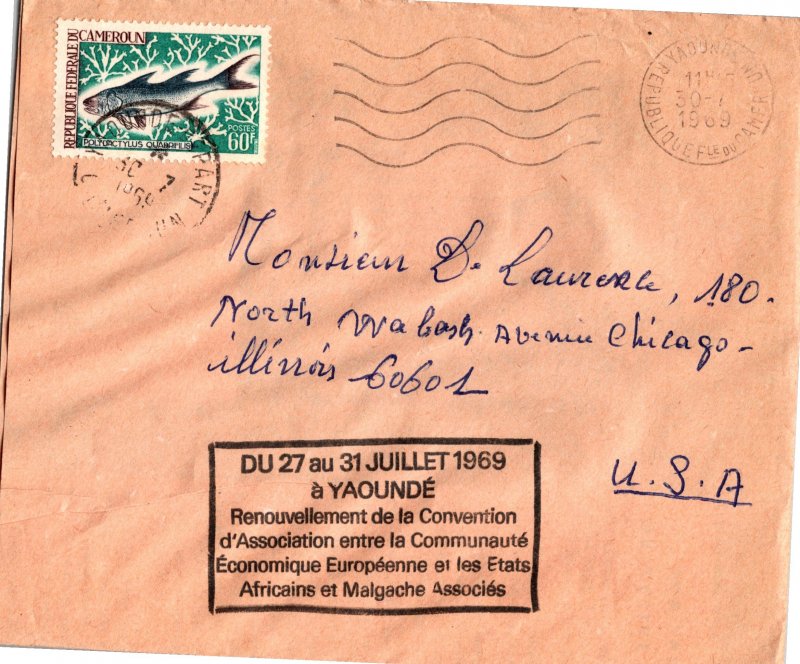 REPUBLIQUE FEDERALE DU
CAMEROUN
POSTES
60F
POLYDACTYLUS QUADRIFILIS
YAOUNDE DEPART
30 7
1969
CAMEROUN
YAOUNDE
11H
30-7
1969
REPUBLIQUE FLE DU CAMEROUN
Monsieur D. Laurence, 180.
North Wabash. Avenue Chicago-
illinois 60601
U.S.A
DU 27 au 31 JUILLET 1969
à YAOUNDÉ
Renouvellement de la Convention
d'Association entre la Communauté
Économique Européenne et les Etats
Africains et Malgache Associés